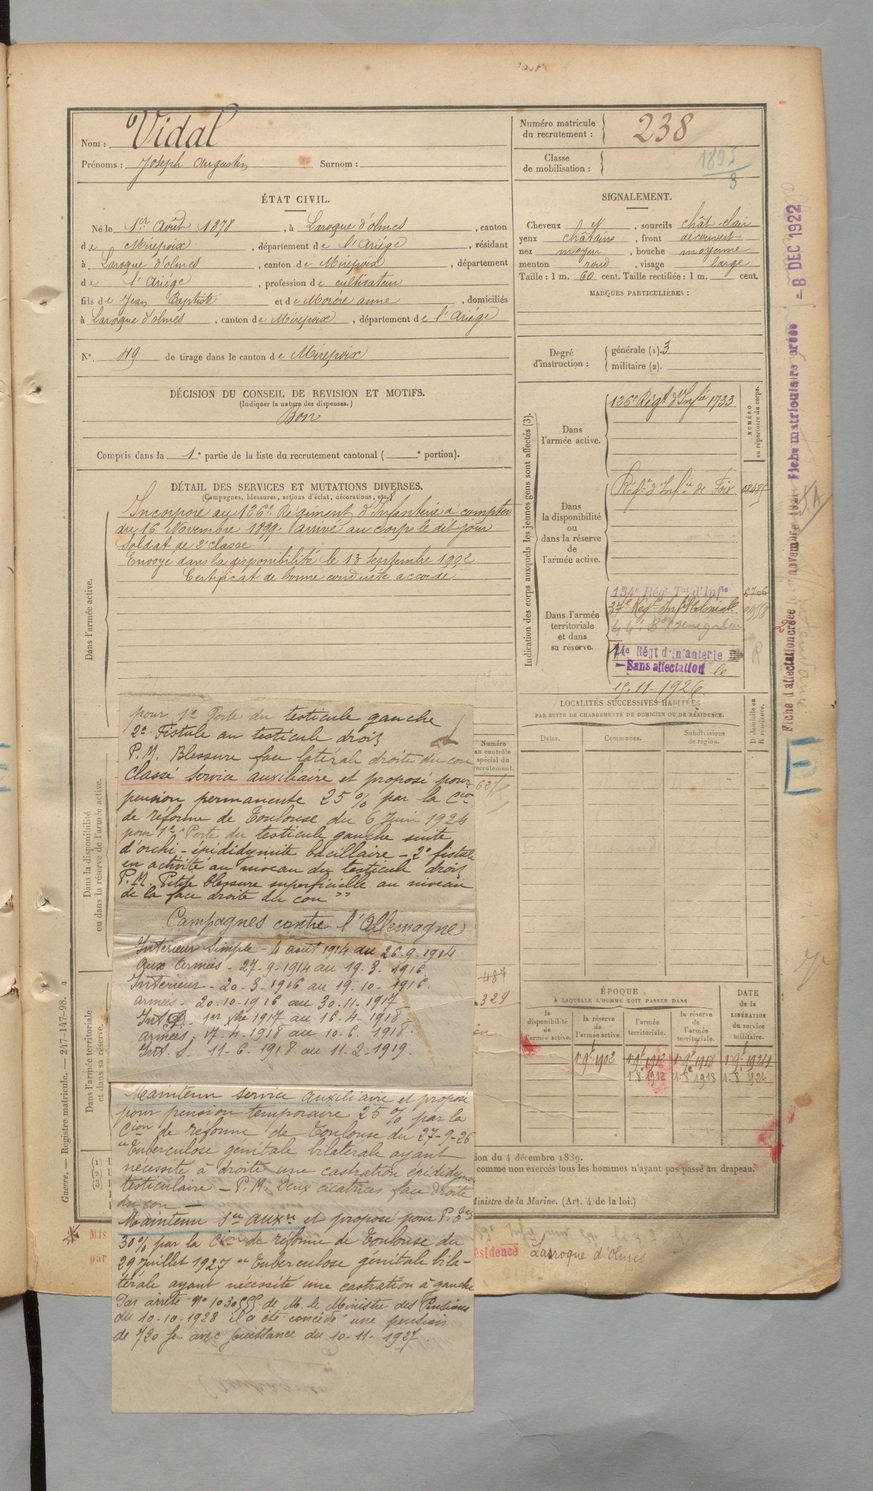 Nom : Vidal
Prénoms : Joseph Augustin Surnom :
Numéro matricule du recrutement : 238
Classe de mobilisation :
ÉTAT CIVIL.
Né le 1er Août 1878, à Laroque d'olmes, canton
de Mirepoix, département de l'Ariége, résidant
à Laroque d'olmes, canton de Mirepoix, département
de l'Ariége, profession de cultivateur
fils de Jean Baptiste et de Morère anne, domiciliés
à Laroque d'olmes, canton de Mirepoix, département de l'Ariége
N° 119 de tirage dans le canton de Mirepoix
SIGNALEMENT.
Cheveux , sourcils chât. clair
yeux châtains, front découvert
nez moyen, bouche moyenne
menton rond, visage large
Taille : 1 m. 60 cent. Taille rectifiée : 1 m. cent.
MARQUES PARTICULIÈRES :
Degré d'instruction : générale (1). 3
militaire (2).
DÉCISION DU CONSEIL DE REVISION ET MOTIFS.
(Indiquer la nature des dispenses.)
Bon
Compris dans la 1e partie de la liste du recrutement cantonal ( portion).
DÉTAIL DES SERVICES ET MUTATIONS DIVERSES.
(Campagnes, blessures, actions d'éclat, décorations, etc.)
Incorporé au 126e Régiment d'Infanterie à compter
du 16 Novembre 1899. arrivé au corps le dit jour
Soldat de 2e classe
Envoyé dans la disponibilité le 13 Septembre 1902
Certificat de bonne conduite accordé
Dans l'armée active.
Dans la disponibilité ou dans la réserve de l'armée active.
Dans l'armée territoriale et dans sa réserve.
Indication des corps auxquels les jeunes gens sont affectés (3).
NUMÉRO au répertoire du corps.
Dans l'armée active.
126e Régt d'Infie 1733
Dans la disponibilité ou dans la réserve de l'armée active.
Régt d'Infie de Foix
Dans l'armée territoriale et dans sa réserve.
134e Régt Tal d'Infie
37e Régt Inf Coloniale
44e Bon Senegalais
14e Régt d'Infanterie
Sans affectation le
15.11.1926
LOCALITÉS SUCCESSIVES HABITÉES
PAR SUITE DE CHANGEMENT DE DOMICILE OU DE RÉSIDENCE.
Dates. Communes. Subdivisions de région. D. domicile ou R. résidence.
Numéro au contrôle spécial du recrutement.
pour 1° Perte du testicule gauche
2° Fistule au testicule droit
P.M. Blessure face latérale droite du cou
Classé service auxiliaire et proposé pour
pension permanente 25% par la Cion
de réforme de Toulouse du 6 Juin 1924
pour 1° Perte du testicule gauche suite
d'orchi-épididymite bacillaire - 2° fistule
en activité au niveau du testicule droit
P.M. Petite blessure superficielle au niveau
de la face droite du cou "
Campagnes contre l'Allemagne
Intérieur Simple - 4 août 1914 au 26-9-1914
Aux Armées - 27-9-1914 au 19.3.1916
Intérieur - 20-3-1916 au 19.10.1916
Armées - 20-10-1916 au 30.11.1917
Int S. 1er Xbre 1917 au 16.4.1918
Armées, 17-4-1918 au 10.6.1918
Int. S. 11-6-1918 au 11-2-1919.
Maintenu service auxiliaire et proposé
pour pension temporaire 25% par la
Cion de réforme de Toulouse du 27-9-26
"Tuberculose génitale bilatérale ayant
nécessité à droite une castration épididymo
testiculaire - P.M. Deux cicatrices face droite
du cou
Maintenu Sce auxre et proposé pour P.
30% par la Cion de réforme de Toulouse du
29 Juillet 1927 "Tuberculose génitale bila-
térale ayant nécessité une castration à gauche
Par arrêté N° 103055 de M. le Ministre des Pensions
du 10-10-1928 il a été concédé une pension
de 720 fr avec jouissance du 10-11-1927.
ÉPOQUE
À LAQUELLE L'HOMME DOIT PASSER DANS
la disponibilité de l'armée active.
la réserve de l'armée active.
l'armée territoriale.
la réserve de l'armée territoriale.
DATE de la LIBÉRATION du service militaire.
1-9-1902 1-9-1912 1-9-1918 1-9-1924
1-8-1912 1-8-1918 1-8-1924
comme non exercés tous les hommes n'ayant pas passé au drapeau.
Ministre de la Marine. (Art. 4 de la loi.)
résidence Larroque d'Olmes
Guerre. — Registre matricule. — 247-147-98.
Fiche matriculaire créée - 8 DEC 1922